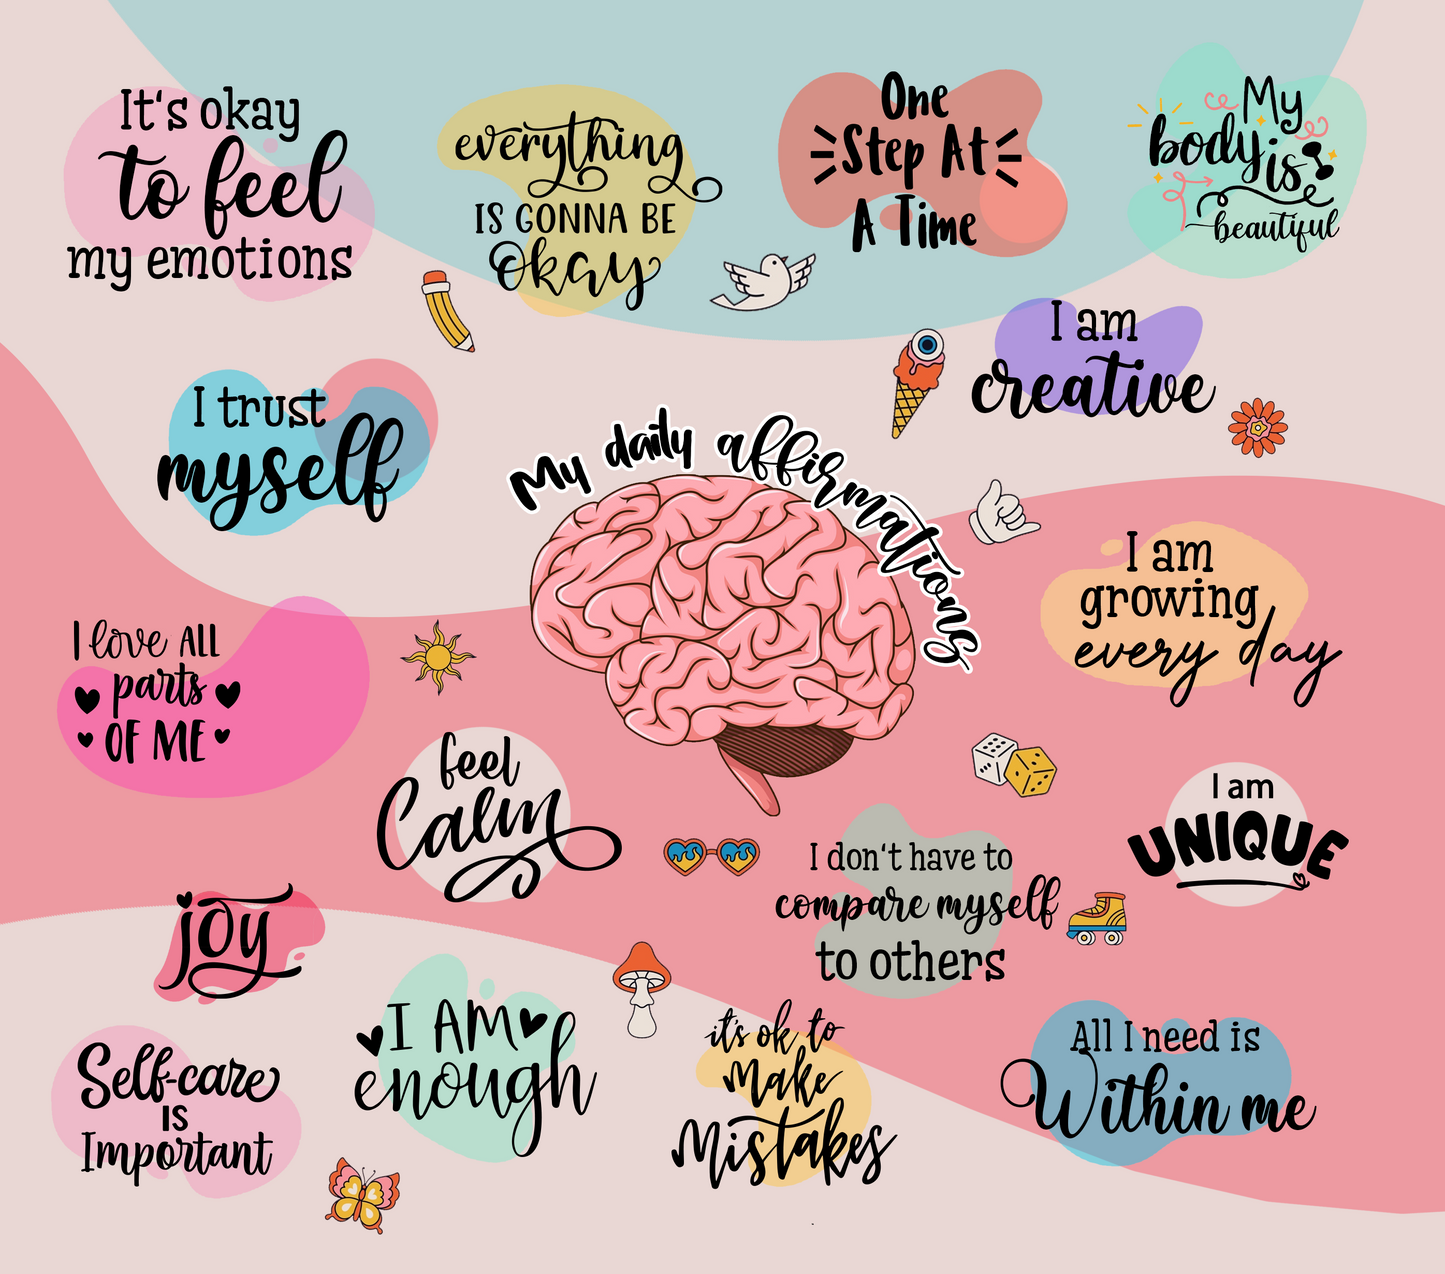 It's okay
to feel
my emotions
everything
IS GONNA BE
okay
One
Step At
A Time
My
body is
beautiful
I am
creative
I trust
myself
My daily affirmations
I am
growing
every day
I love All
parts
OF ME
feel
Calm
I am
UNIQUE
I don't have to
compare myself
to others
joy
I AM
enough
it's ok to
Make
Mistakes
All I need is
Within me
Self-care
IS
Important